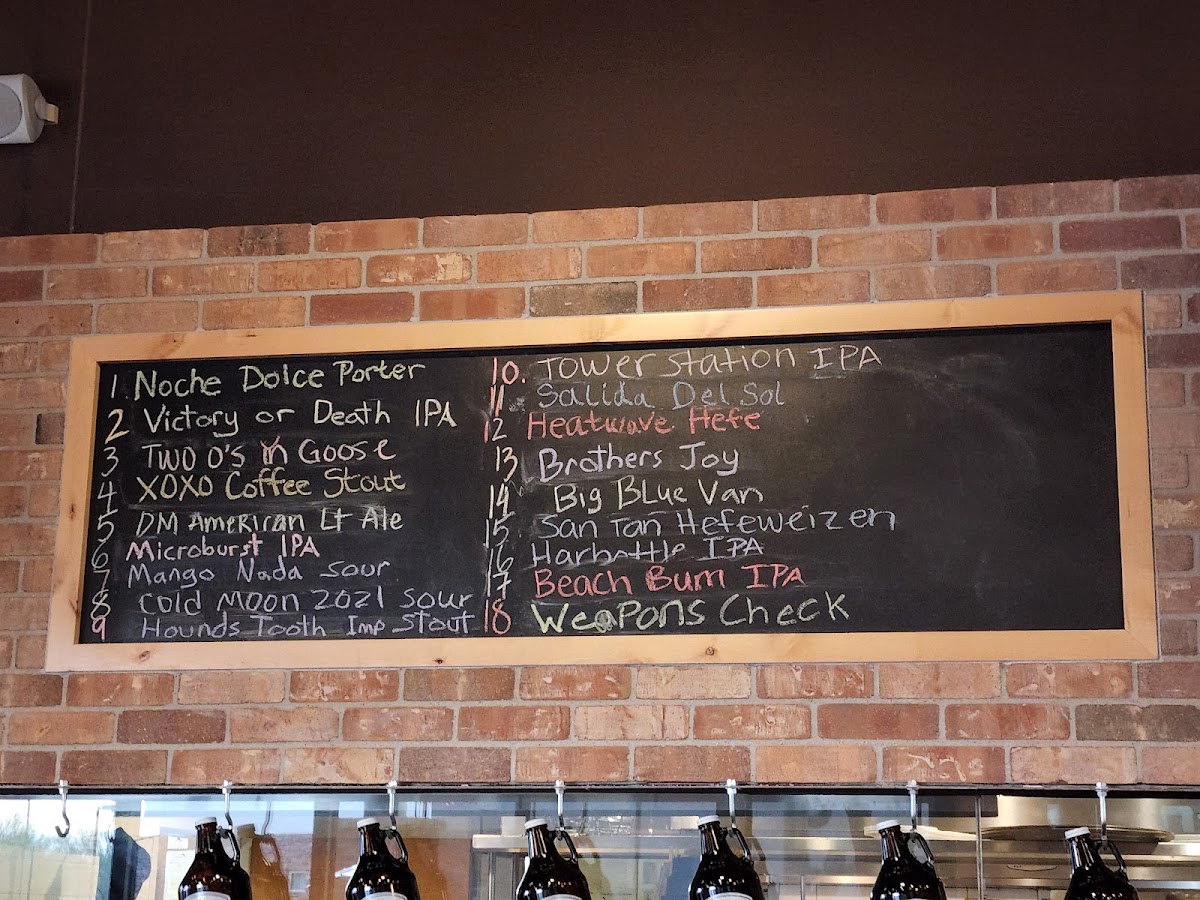 1. Noche Dolce Porter
2 Victory or Death IPA
3 TWO O'S N GOOSE
4 XOXO Coffee Stout
5 DM AMERICAN Lt Ale
6 Microburst IPA
7 Mango Nada Sour
8 Cold Moon 2021 Sour
9 Hounds Tooth Imp Stout
10. Tower Station IPA
11 Salida Del Sol
12 Heatwave Hefe
13 Brothers Joy
14 Big Blue Van
15 San Tan Hefeweizen
16 Harbottle IPA
17 Beach Bum IPA
18 Weapons Check